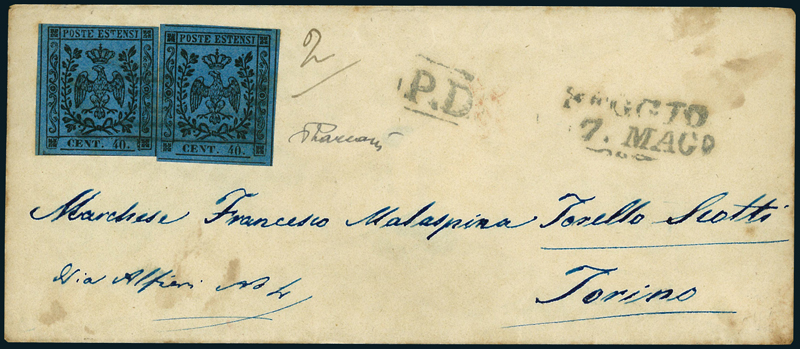 POSTE ESTENSI
CENT. 40.
POSTE ESTENSI
CENT. 40.
2
P.D
REGGIO
7. MAGO
Marchese Francesco Malaspina Torello Scotti
Via Alfieri No 4
Torino